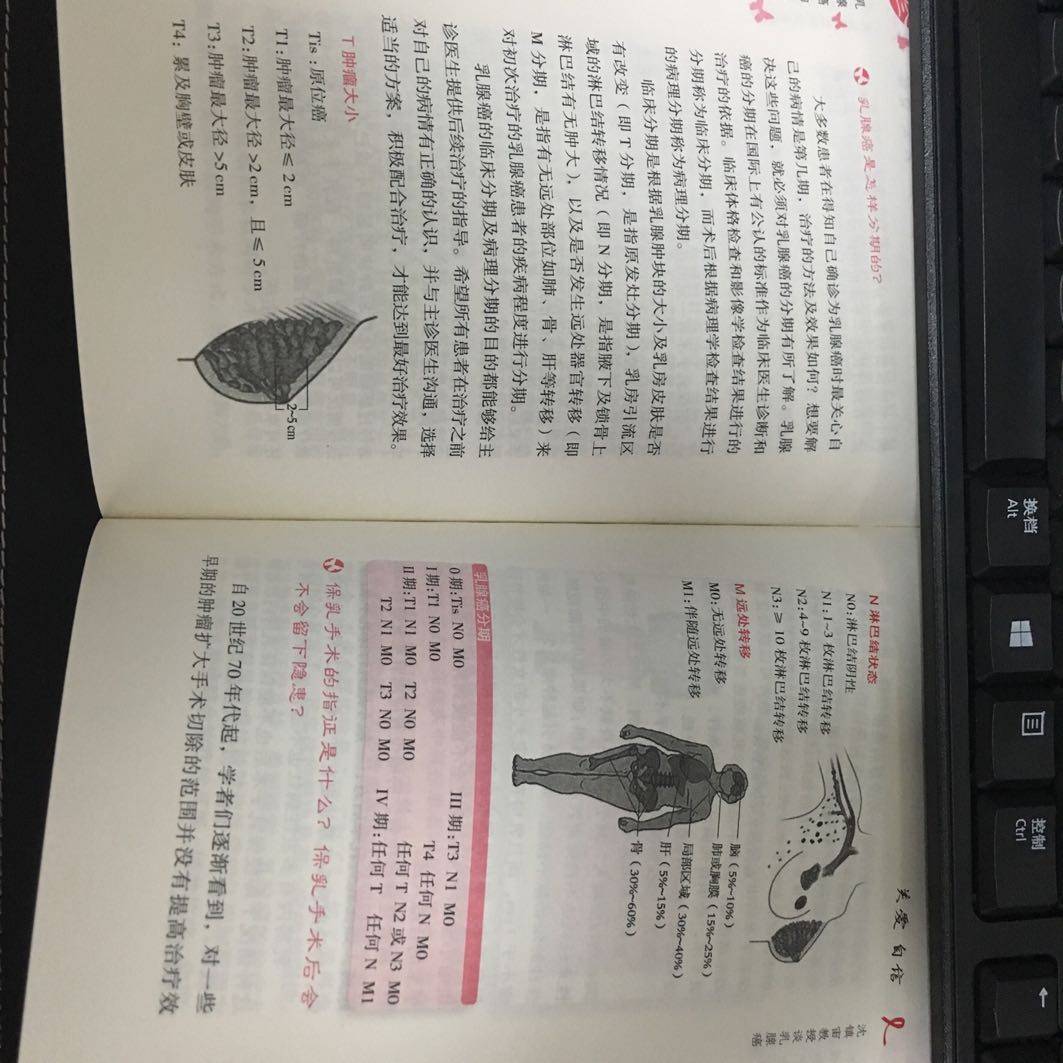 乳腺癌是怎样分期的?
大多数患者在得知自己确诊为乳腺癌时最关心自
己的病情是第几期，治疗的方法及效果如何？想要解
决这些问题，就必须对乳腺癌的分期有所了解。乳腺
癌的分期在国际上有公认的标准作为临床医生诊断和
治疗的依据。临床体格检查和影像学检查结果进行的
分期称为临床分期，而术后根据病理学检查结果进行
的病理分期称为病理分期。
临床分期是根据乳腺肿块的大小及乳房皮肤是否
有改变（即 T 分期，是指原发灶分期），乳房引流区
域的淋巴结转移情况（即 N 分期，是指腋下及锁骨上
淋巴结有无肿大），以及是否发生远处器官转移（即
M 分期，是指有无远处部位如肺、骨、肝等转移）来
对初次治疗的乳腺癌患者的疾病程度进行分期。
乳腺癌的临床分期及病理分期的目的都能够给主
诊医生提供后续治疗的指导。希望所有患者在治疗之前
对自己的病情有正确的认识，并与主诊医生沟通，选择
适当的方案，积极配合治疗，才能达到最好治疗效果。
T 肿瘤大小
Tis：原位癌
T1：肿瘤最大径 ≤ 2 cm
T2：肿瘤最大径 >2 cm，且 ≤ 5 cm
T3：肿瘤最大径 >5 cm
T4：累及胸壁或皮肤
2~5 cm
关爱 自信
沈镇宙教授谈乳腺癌
N 淋巴结状态
N0：淋巴结阴性
N1：1~3 枚淋巴结转移
N2：4~9 枚淋巴结转移
N3：≥ 10 枚淋巴结转移
M 远处转移
M0：无远处转移
M1：伴随远处转移
脑（5%~10%）
肺或胸膜（15%~25%）
局部区域（30%~40%）
肝（5%~15%）
骨（30%~60%）
乳腺癌分期
0 期：Tis N0 M0
I 期：T1 N0 M0
II 期：T1 N1 M0 T2 N0 M0
T2 N1 M0 T3 N0 M0
III 期：T3 N1 M0
T4 任何 N M0
任何 T N2 或 N3 M0
IV 期：任何 T 任何 N M1
保乳手术的指证是什么？保乳手术后会
不会留下隐患？
自 20 世纪 70 年代起，学者们逐渐看到，对一些
早期的肿瘤扩大手术切除的范围并没有提高治疗效
换档
Alt
控制
Ctrl